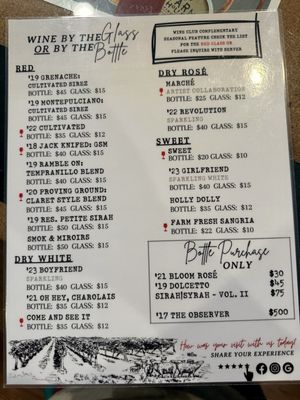 WINE BY THE Glass
OR BY THE Bottle
WINE CLUB COMPLEMENTARY
SEASONAL FEATURE CHECK THE LIST
FOR THE RED GLASS OR
PLEASE INQUIRE WITH SERVER
RED
'19 GRENACHE:
CULTIVATED SIREZ
BOTTLE: $45 GLASS: $15
'19 MONTEPULCIANO:
CULTIVATED SIREZ
BOTTLE: $45 GLASS: $15
'22 CULTIVATED
BOTTLE: $35 GLASS: $12
'18 JACK KNIFED: GSM
BOTTLE: $40 GLASS: $15
'19 RAMBLE ON:
TEMPRANILLO BLEND
BOTTLE: $40 GLASS: $15
'20 PROVING GROUND:
CLARET STYLE BLEND
BOTTLE: $45 GLASS: $15
'19 RES. PETITE SIRAH
BOTTLE: $50 GLASS: $15
SMOK & MIROIRS
BOTTLE: $50 GLASS: $15
DRY WHITE
'23 BOYFRIEND
SPARKLING
BOTTLE: $40 GLASS: $15
'21 OH HEY, CHAROLAIS
BOTTLE: $35 GLASS: $12
COME AND SEE IT
BOTTLE: $35 GLASS: $12
DRY ROSÉ
MARCHÉ
ARTIST COLLABORATION
BOTTLE: $25 GLASS: $12
'22 REVOLUTION
SPARKLING
BOTTLE: $40 GLASS: $15
SWEET
SWEET
BOTTLE: $20 GLASS: $10
'23 GIRLFRIEND
SPARKLING WHITE
BOTTLE: $40 GLASS: $15
HOLLY DOLLY
BOTTLE: $35 GLASS: $12
FARM FRESH SANGRIA
BOTTLE: $22 GLASS: $10
Bottle Purchase
ONLY
'21 BLOOM ROSÉ $30
'19 DOLCETTO $45
SIRAH|SYRAH - VOL. II $75
'17 THE OBSERVER $500
How was your visit with us today?
SHARE YOUR EXPERIENCE